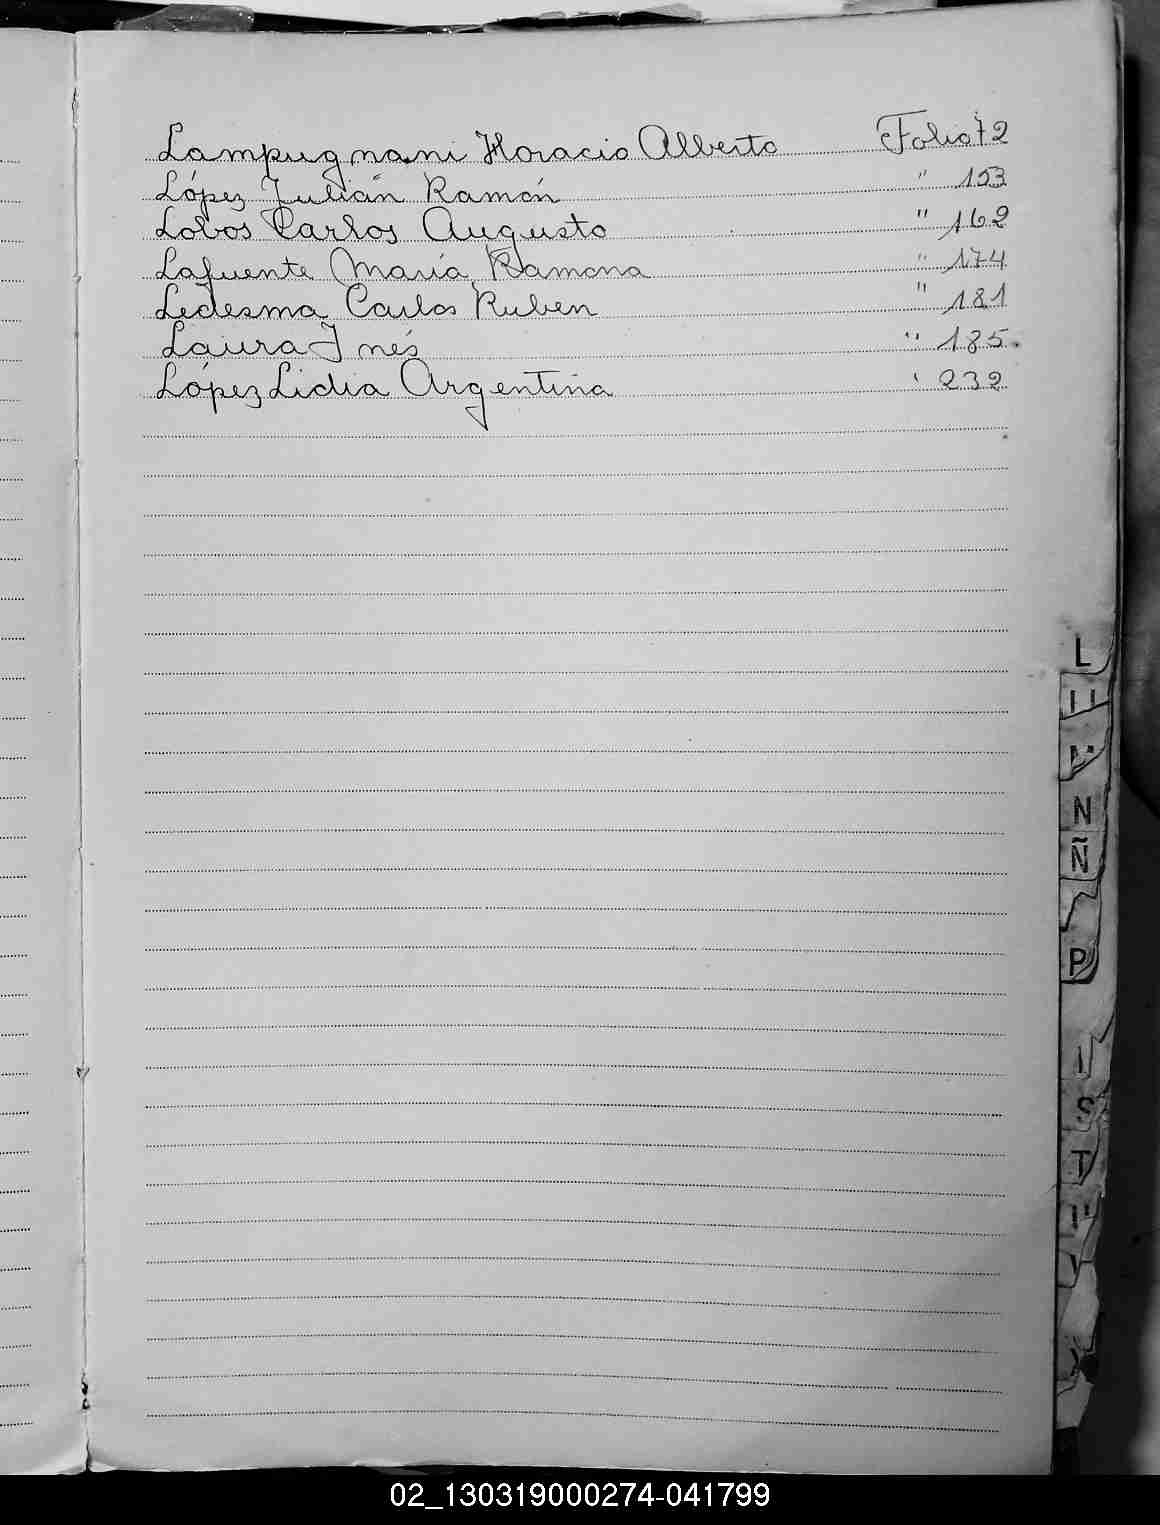 Lampugnani Horacio Alberto Folio 72
López Julián Ramón " 153
Lobos Carlos Augusto " 162
Lafuente María Ramona " 174
Ledesma Carlos Ruben " 181
Laura Inés " 185.
López Lidia Argentina ' 232
L
N
Ñ
P
S
T
02_130319000274-041799